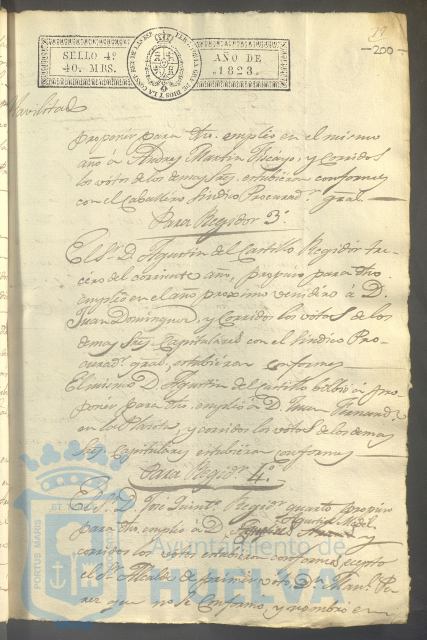 SELLO 4º
40. MRS.
AÑO DE
1823.
19
200
Havilitado
proponer para dho. empleo en el mismo
año á Andres Martin Vicayo, y Corridos
los votos de los demas Sres. estubieron conformes
con el Caballero Sindico Procurador. gral.
Para Regidor 3º.
El Sr. D. Agustin del Castillo Regidor ter-
cero del corriente año, propuso para dho.
empleo en el año proximo venidero á D.
Juan Dominguez, y Corridos los votos de los
demas Sres. Capitulares con el Sindico Pro-
curador. gral. estubieron conformes
El mismo D. Agustin del Castillo bolbió á pro-
poner para dho. empleo á D. Juan Fernandz.
en la Plaseta, y corridos los votos de los demas
Sres. Capitulares estubieron conformes
Para Regidor. 4º.
El Sr. D. Jose Quintº. Regidor. quarto propuso
para dho. empleo á D. y
corridos los votos estubieron conformes, ecepto
el Sr. Alcalde de primer voto Dn. Manl. Pe-
rez que no se conformó, y nombró en
PORTUS MARIS
ET
Ayuntamiento de
HUELVA